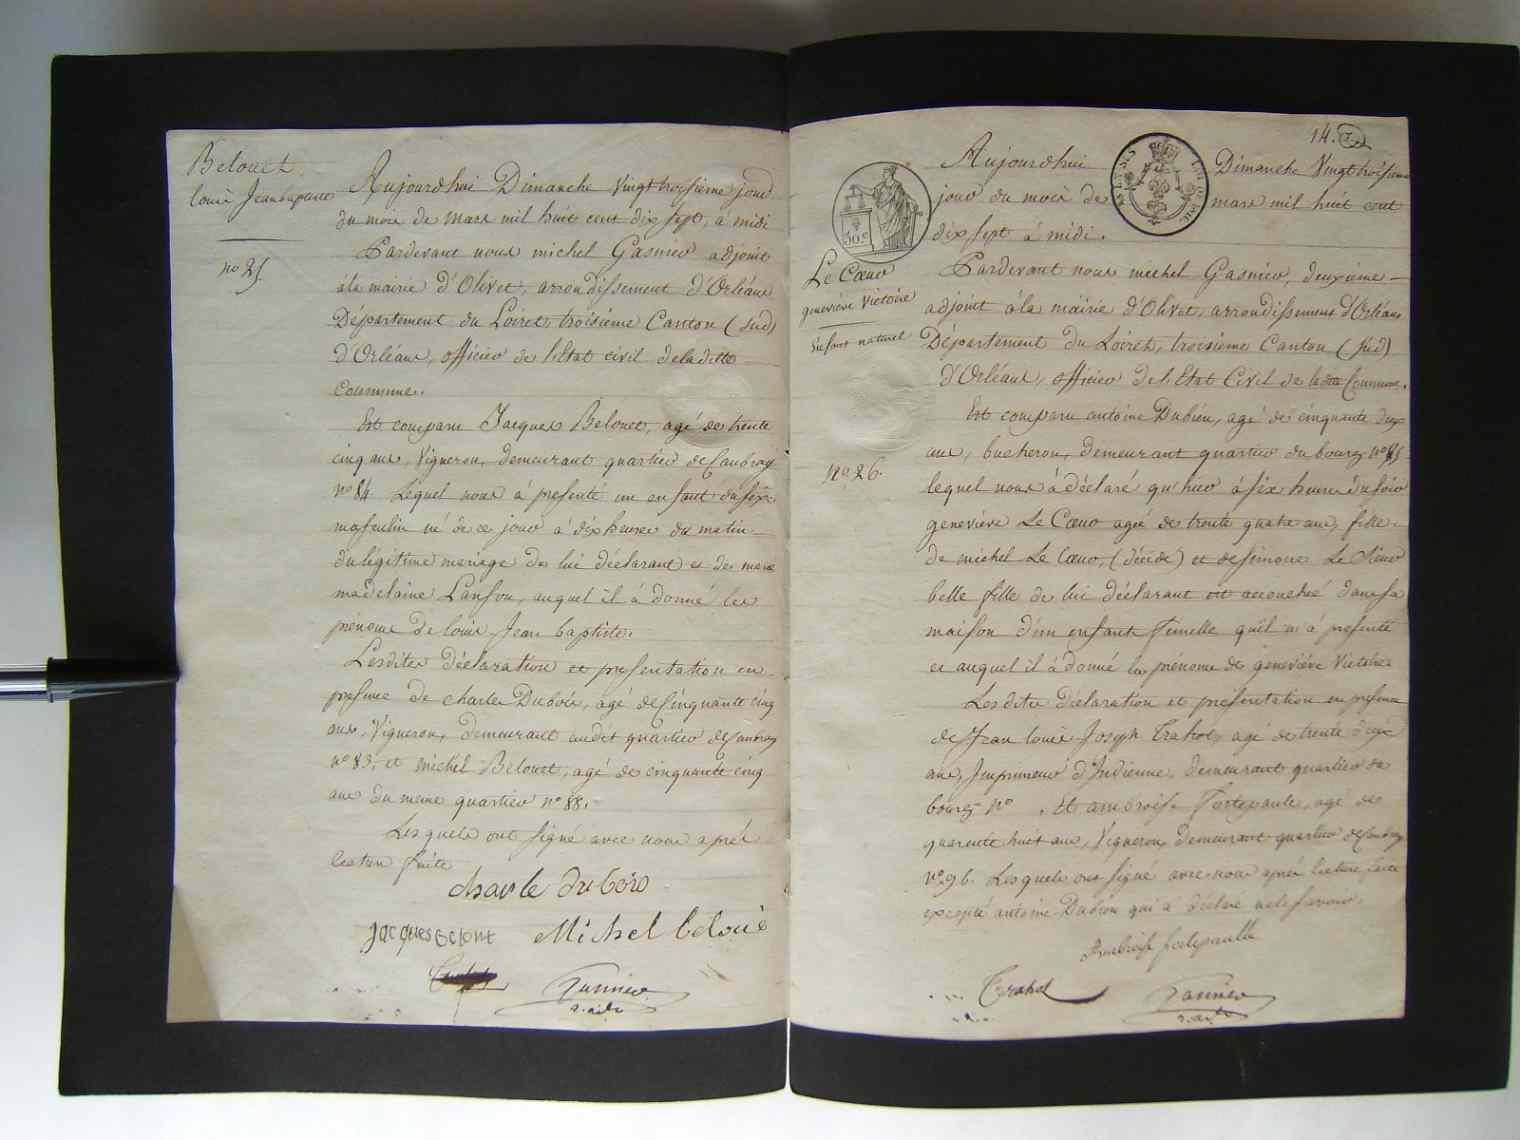 Belouet
Louis Jean baptiste
no 25
Aujourdhui Dimanche Vingt troisieme jour
du mois de Mars mil huit cent dix sept, à midi
Pardevant nous michel Gasnier adjoint
à la mairie d'Olivet, arrondissement d'Orléans
Département du Loiret, troisieme Canton (Sud)
d'Orléans, officier de l'Etat civil de la ditte
Commune.
Est comparu Jacques Belouet, agé de trente
cinq ans, Vigneron, demeurant quartier de
no 84. Lequel nous à presenté un enfant du sexe
masculin né de ce jour à dix heures du matin
du légitime mariage de lui déclarant et de marie
madelaine Lanson, auquel il à donné les
prénoms de Louis Jean baptiste.
Lesdites déclaration et presentation en
presence de charle Dubois, agé de Cinquante cinq
ans, Vigneron, demeurant audit quartier de
no 83, et michel Belouet, agé de cinquante cinq
ans du meme quartier no 88.
Lesquels ont signé avec nous après
lecture faite
charle dubois
Jacques Belouet Michel beloue
Gasnier
adjt
14.
Aujourdhui Dimanche Vingt troisieme
jour du mois de mars mil huit cent
dix sept à midi.
30 c
Le Cœur
geneviève Victoire
Enfant naturel
no 26.
Pardevant nous michel Gasnier, deuxième
adjoint à la mairie d'Olivet, arrondissement d'Orléans
Département du Loiret, troisieme Canton (Sud)
d'Orléans, officier de l'Etat Civil de la dite Commune.
Est comparu antoine Dubien, agé de cinquante deux
ans, bucheron, demeurant quartier du bourg no
lequel nous à déclaré qu'hier à six heures du soir
geneviève Le Cœur agée de trente quatre ans, fille
de michel Le Cœur, (décédé) et de
belle fille de lui déclarant est accouchée dans sa
maison d'un enfant femelle qu'il m'à presenté
et auquel il à donné les prénoms de geneviève Victoire
Lesdites déclaration et présentation en presence
de Jean Louis Joseph Trahot, agé de trente
ans, Imprimeur d'Indienne, demeurant quartier du
bourg no . Et ambroise Fortepaule, agé de
quarente huit ans, Vigneron, demeurant quartier de
no 96. Lesquels ont signé avec nous après lecture faite
excepté antoine Dubien qui à déclaré ne le savoir.
Ambroise fortepaulle
Trahot Gasnier
adjt